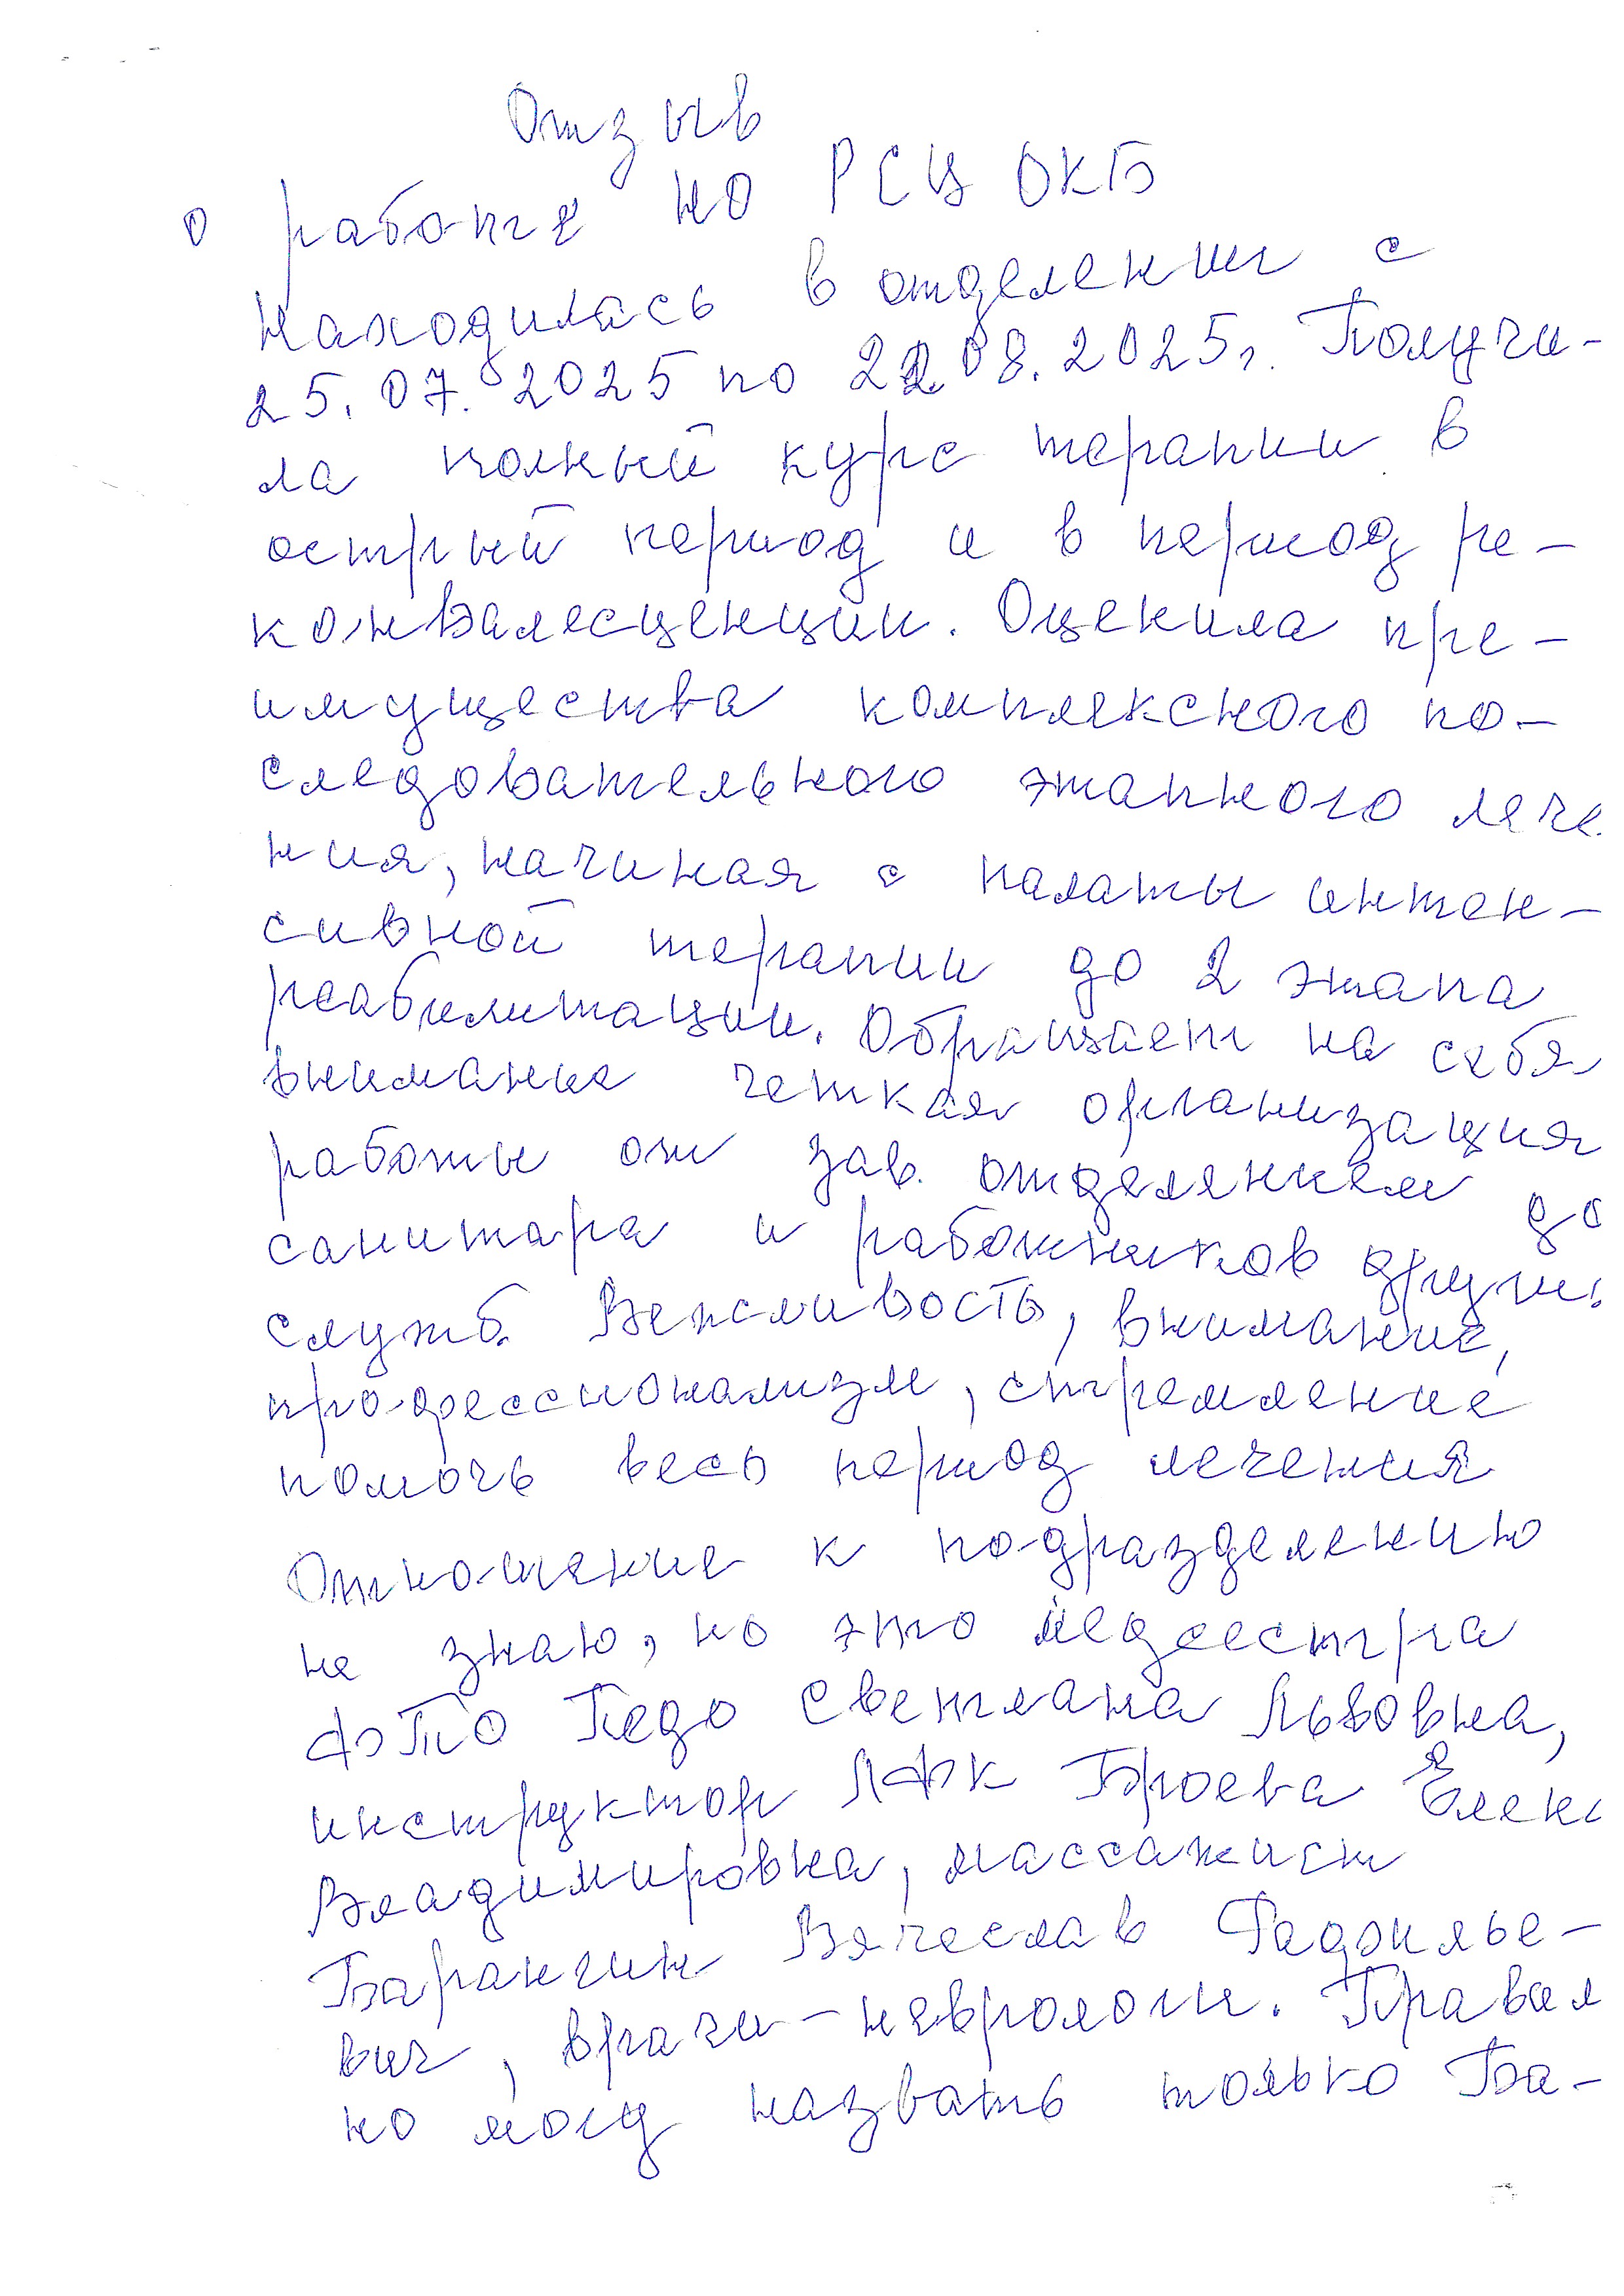 Отзыв
о работе НО РСЦ ОКБ
Находилась в отделении с
25.07.2025 по 22.08.2025г. Получи-
ла полный курс терапии в
острый период и в период ре-
конвалесценции. Оценила пре-
имущества комплексного по-
следовательного этапного лече
ния, начиная с палаты интен-
сивной терапии до 2 этапа
реабилитации. Обращает на себя
внимание четкая организация
работы от зав. отделением до
санитара и работников других
служб. Вежливость, внимание,
профессионализм, стремление
помочь весь период лечения
Отношение к подразделению
не знаю, но это медсестра
ФТО Педо Светлана Львовна,
инструктор ЛФК Броева Елена
Владимировна, массажист
Барангин Вячеслав
вич, врачи-неврологи. Правил
но могу назвать только Ба-